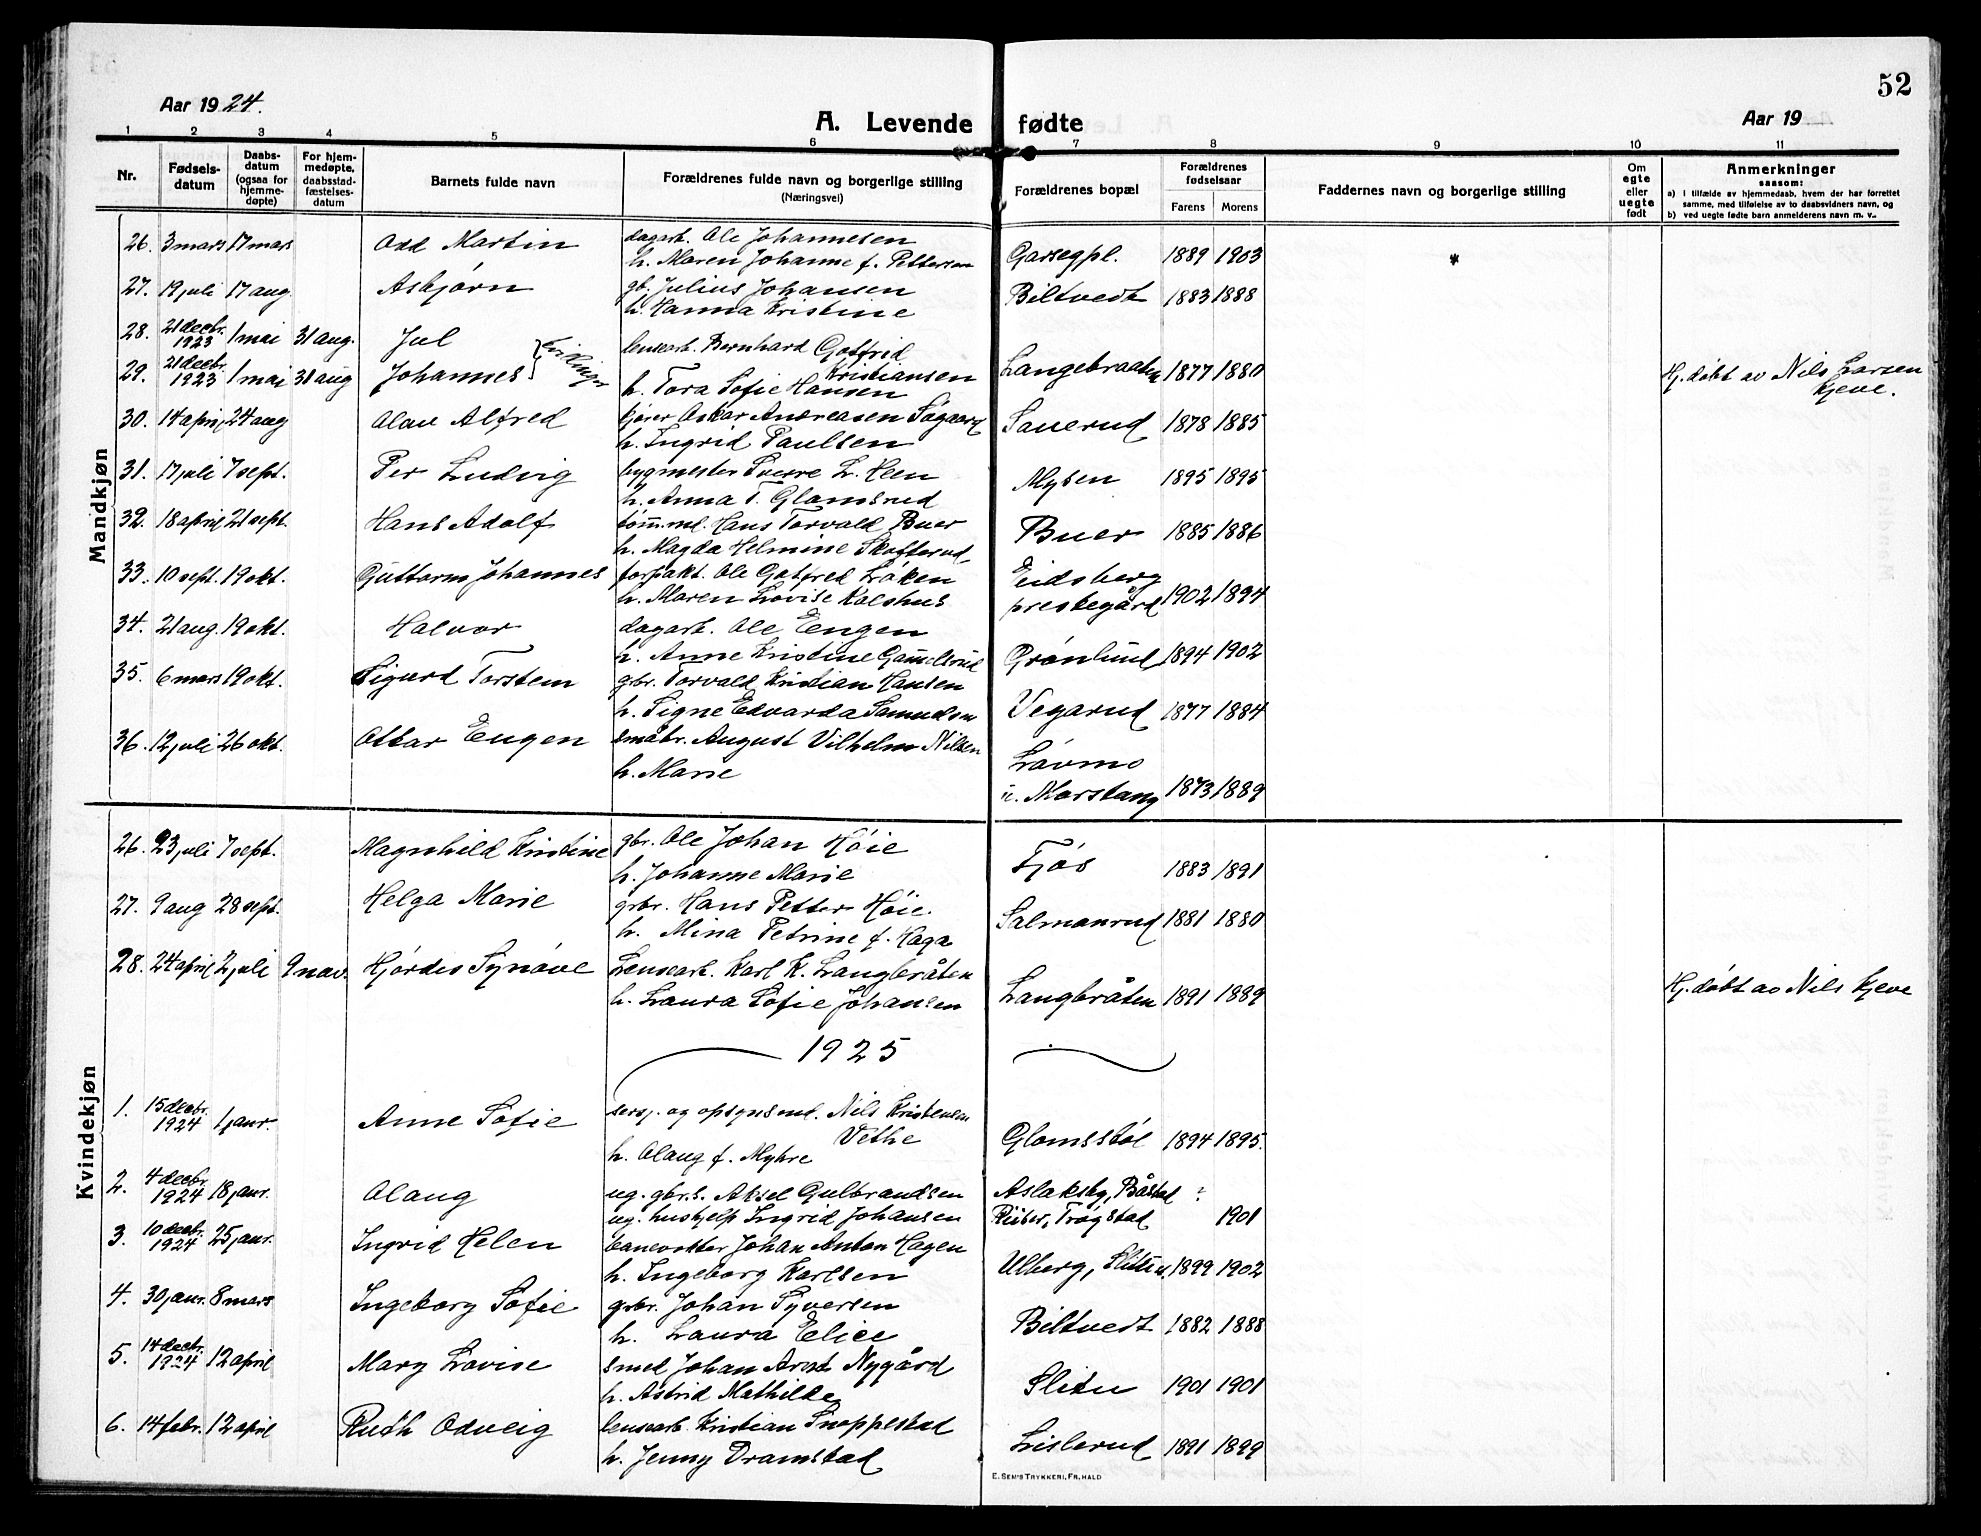 52
Aar 1924.
A. Levende fødte
Aar 19
1 2 3 4 5 6 7 8 9 10 11
Nr.
Fødsels-
datum
Daabs-
datum
(ogsaa for
hjemme-
døpte)
For hjem-
medøpte,
daabsstad-
fæstelses-
datum
Barnets fulde navn
Forældrenes fulde navn og borgerlige stilling
(Næringsvei)
Forældrenes bopæl
Forældrenes
fødselsaar
Farens Morens
Faddernes navn og borgerlige stilling
Om
egte
eller
uegte
født
Anmerkninger
saasom:
a) i tilfælde av hjemmedaab, hvem der har forrettet
samme, med tilføielse av to daabsvidners navn, og
b) ved uegte fødte barn anmelderens navn m. v..
Mandkjøn
26. 3 mars 17 mars Odd Martin dagarb. Ole Johannesen
h. Maren Johanne f. Pettersen Garsegpl. 1889 1903
27. 19 juli 17 aug Asbjørn gb. Julius Johansen
h. Hanna Kristine Biltvedt 1883 1888
28. 21 decbr. 1923 1 mai 31 aug. Jul lensearb. Bernhard Gotfrid
Kristiansen
29. 21 decbr. 1923 1 mai 31 aug Johannes } tvillinger
h. Tora Sofie Hansen Langebraaten 1877 1880 Hj. døbt av Nils Larsen
Kjeve.
30. 14 april 24 aug Olav Alfred kjører Oskar Andreasen Søgaard
h. Ingrid Paulsen Sauerud 1878 1885
31. 17 juli 7 sept. Per Ludvig bygmester Sverre L. Heen
h. Anna T. Glomsrud Mysen 1895 1895
32. 18 april 21 sept. Hans Adolf tømm.md. Hans Torvald Buer
h. Magda Helmine Skofterud Buer 1885 1886
33. 10 sept. 19 okt. Guttorm Johannes forpakt. Ole Gotfred Løken
h. Maren Lovise Kolshus Eidsberg
prestegård 1902 1894
34. 21 aug. 19 okt. Halvor dagarb. Ole Eengen
h. Anne Kristine Gam̄elsrud Grønlund 1894 1902
35. 6 mars 19 okt. Sigurd Torstein grbr. Torvald Kristian Hansen
h. Signe Edvarda Samuelsen Vegarud 1877 1884
36. 12 juli 26 okt. Ottar Eugen småbr. August Vilhelm Nilsen
h. Marie Løvmo
u. Morstang 1873 1889
Kvindekjøn
26. 23 juli 7 sept. Magnhild Kristine gbr. Ole Johan Høie
h. Johanne Marie Fjøs 1883 1891
27. 9 aug 28 sept. Helga Marie grbr. Hans Petter Høie.
h. Mina Petrine f. Haga Salmanrud 1881 1880
28. 24 april 2 juli 9 nov. Hjørdis Synøve Lensearb. Karl K. Langbråten
h. Laura Sofie Johansen Langbråten 1891 1889 Hj. døbt av Nils Kjeve
1925
1. 15 decbr. 1924 1 janr. Anne Sofie sersj. og opsynsmd. Nils Kristensen
Vethe
h. Olaug f. Myhre Glomsstøl 1894 1895.
2. 4 decbr. 1924 18 janr. Olaug ug. gbr.s. Aksel Gulbrandsen Aslaksby, Båstad ?
ug. hushjelp Ingrid Johansen Riiser, Trøgstad 1901
3. 10 decbr. 1924 25 janr. Ingrid Helen banevokter Johan Anton Hagen
h. Ingeborg Karlsen Ulberg, Slitu. 1899 1902
4. 30 janr. 8 mars Ingeborg Sofie grbr. Johan Syversen
h. Laura Elise Biltvedt 1882 1888
5. 14 decbr. 1924 12 april Mary Lovise smed Johan Arnt Nygård
h. Astrid Mathilde Slitu 1901 1901
6. 14 febr. 12 april Ruth Odveig lensearb. Kristian Snoppestad
h. Jenny Dramstad Lislerud 1891 1899
E. SEM'S TRYKKERI, FR. HALD